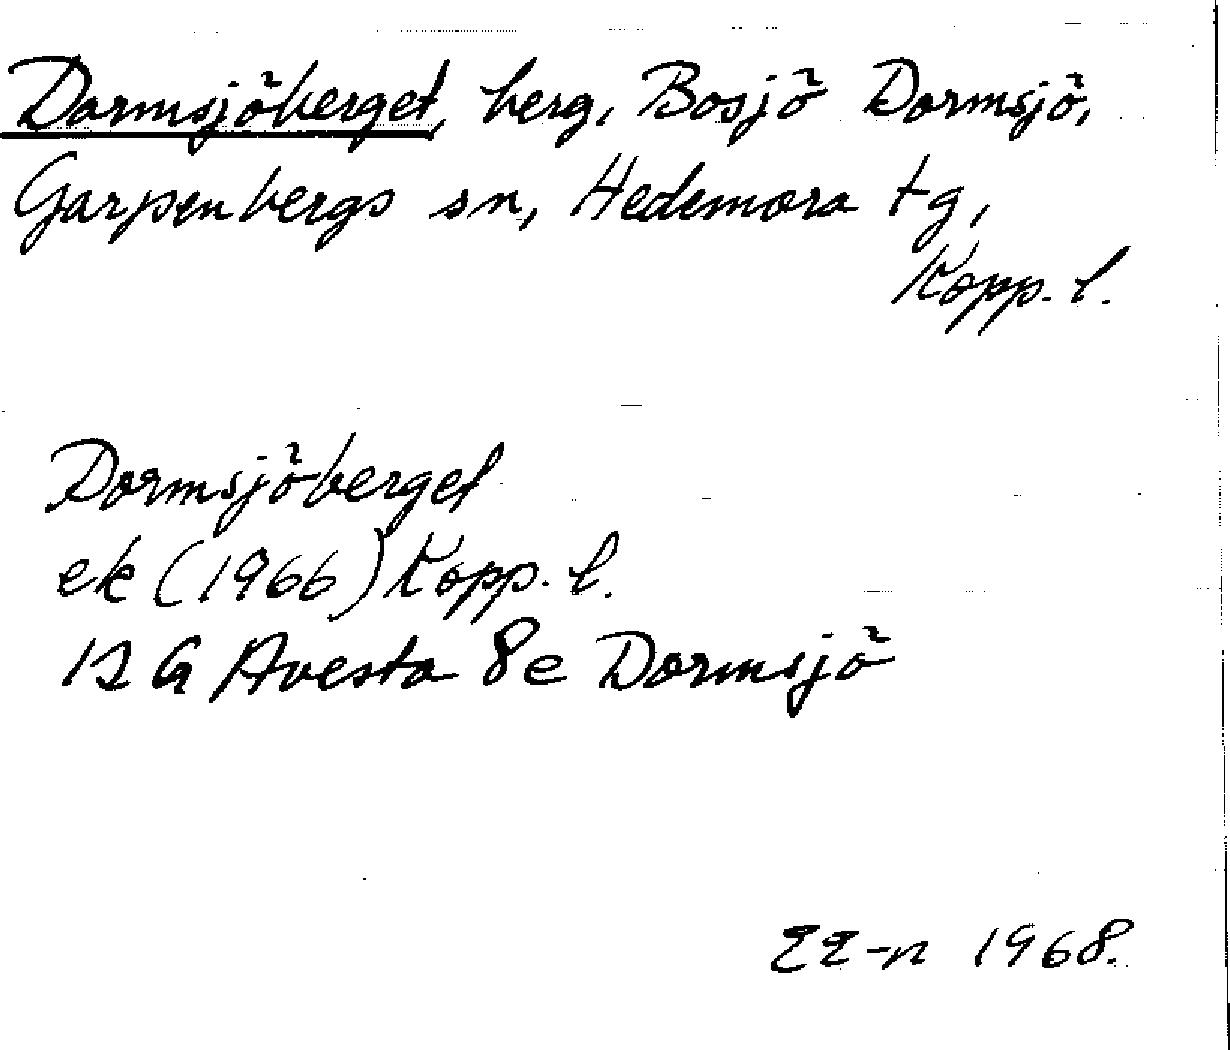 Dormsjöberget, berg, Bosjö Dormsjö,
Garpenbergs sn, Hedemora tg,
Kopp. l.
Dormsjöberget
ek (1966) Kopp. l.
12 G Avesta 8e Dormsjö
EE-n 1968.